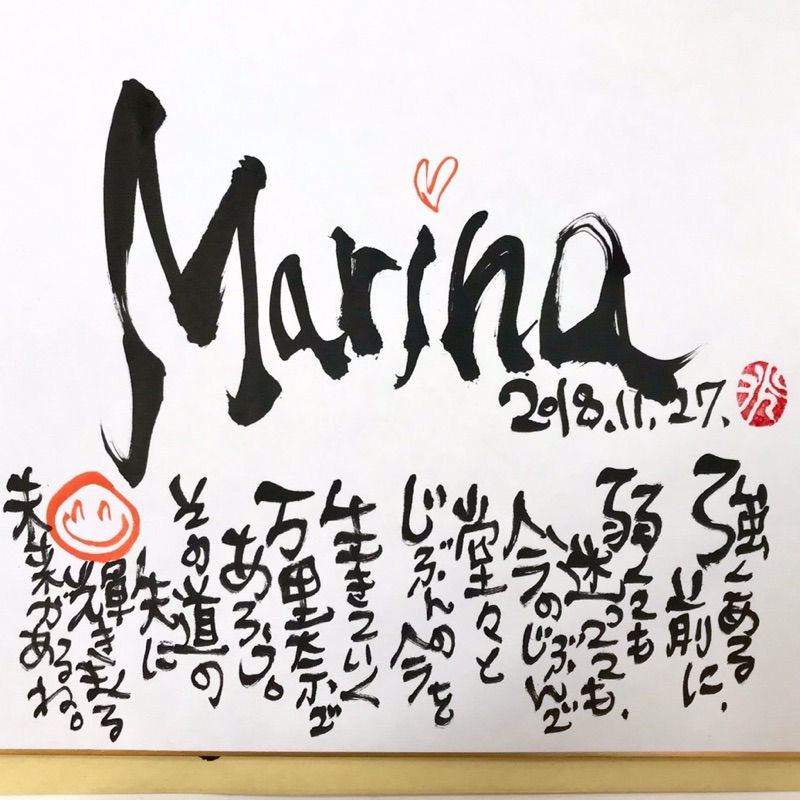 Marina
2018.11.27.
強くある
以前に、
弱くても
迷っても、
今のじぶんで
堂々と
じぶんの今を
生きていく
万里
あろう。
その道の
先に
輝きまくる
未来があるね。